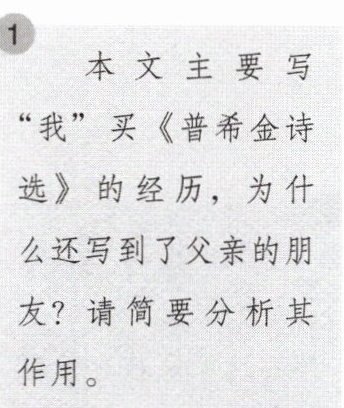 1
本文主要写
“我”买《普希金诗
选》的经历，为什
么还写到了父亲的朋
友？请简要分析其
作用。